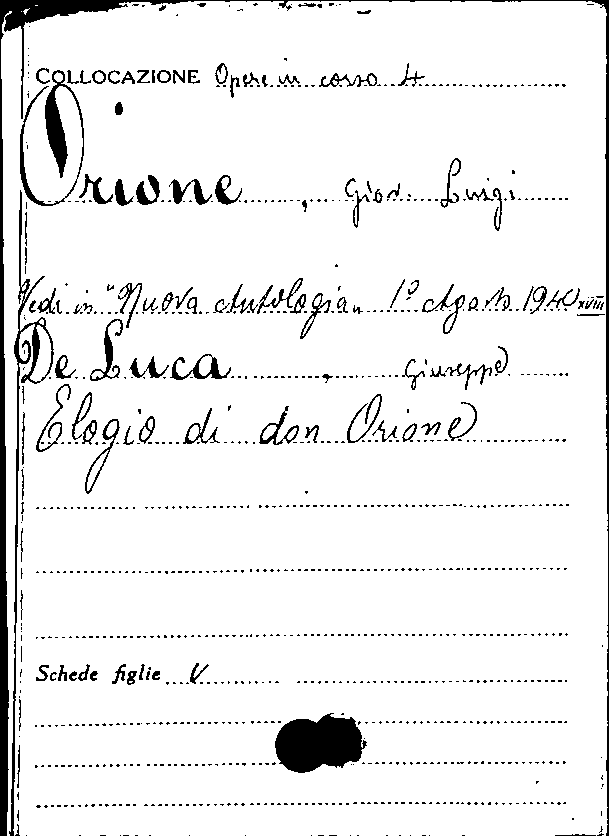 COLLOCAZIONE Opere in corso 4
Orione, Giov. Luigi
Vedi in "Nuova Antologia„ 1º Agosto 1940 XVIII
De Luca, Giuseppe
Elogio di don Orione
Schede figlie V